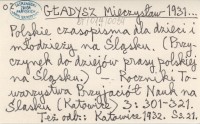 GŁADYSZ Mieczysław 1931...
Polskie czasopisma dla dzieci i
młodzieży na Śląsku. (Przy-
czynek do dziejów prasy polskiej
na Śląsku.) — Roczniki To-
warzystwa Przyjaciół Nauk na
Śląsku (Katowice) 3: 301-321.
Też odb: Katowice 1932. Ss. 21.